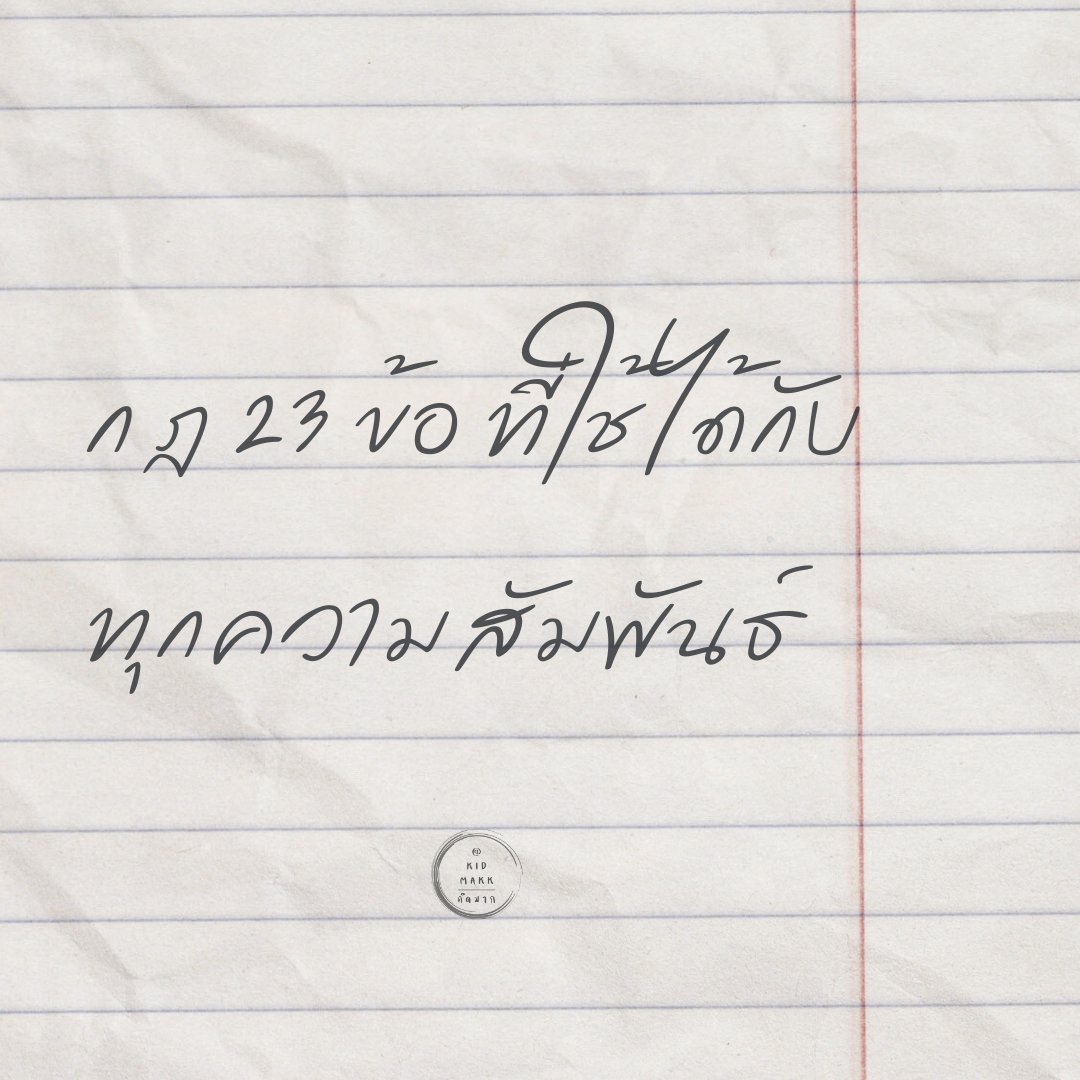 กฎ 23 ข้อ ที่ใช้ได้กับ
ทุกความสัมพันธ์
@
KID
MAKK
คิดมาก